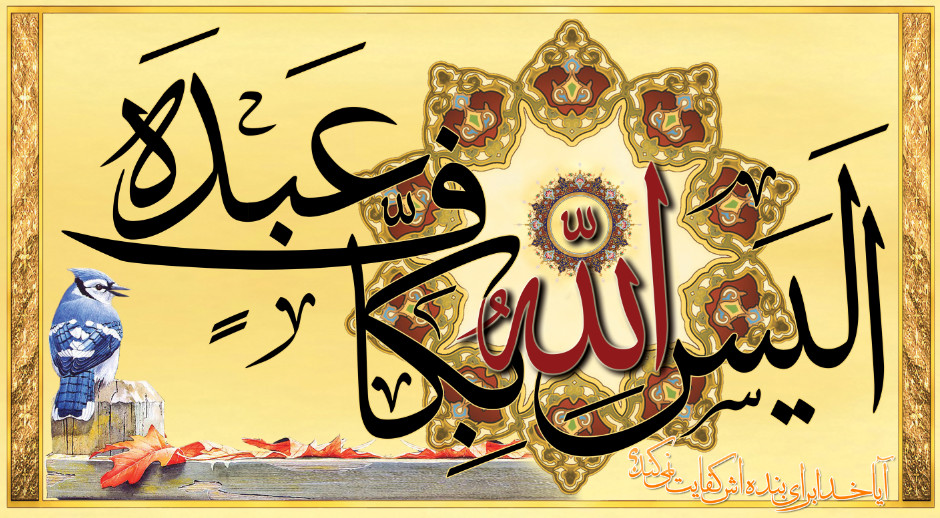 اَلَیسَ اللّهُ بِکَافٍ عَبدَهُ
آیا خدا برای بنده اش کفایت نمی کند؟